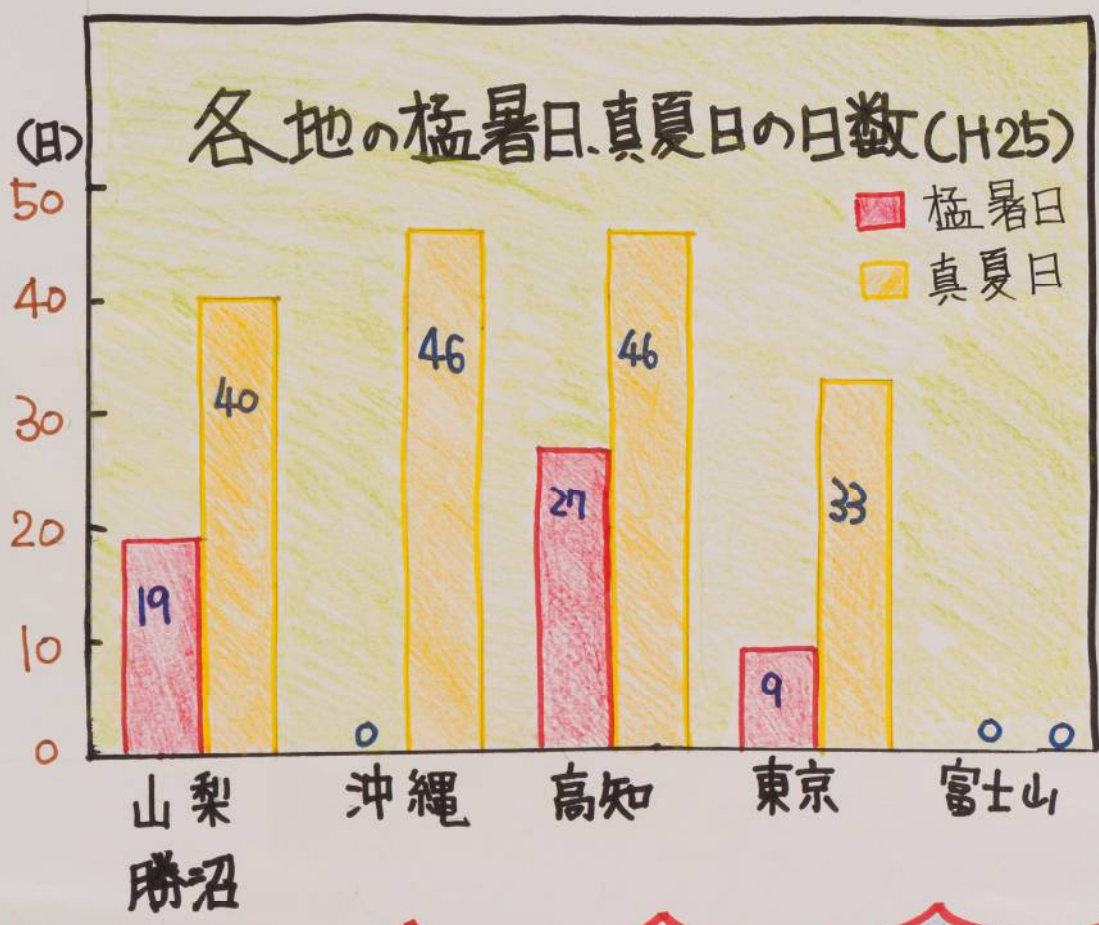 各地の猛暑日、真夏日の日数(H25)
(日)
猛暑日
真夏日
50
40
30
20
10
0
19
40
0
46
27
46
9
33
0
0
山梨
勝沼
沖縄
高知
東京
富士山